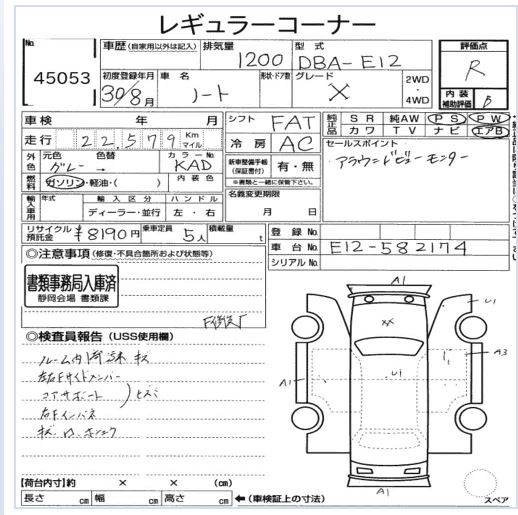 レギュラーコーナー
No.
45053
車歴 (自家用以外は記入)
排気量
1200
型式
DBA-E12
評価点
R
初度登録年月
30/8月
車名
ノート
形状・ドア数
グレード
X
2WD
・
4WD
内装
補助評価
B
車検 年 月
シフト
FAT
純正品
SR 純AW PS PW
カワ TV ナビ エアB
走行
22,579
Km
マイル
冷房
AC
セールスポイント
アラウンドビューモニター
外色
元色
グレー
色替
→
カラーNo
KAD
新車整備手帳
(保証書付)
有・無
※書類と一緒に保管下さい。
燃料
ガソリン・軽油・( )
内装色
輸入車用
年式
輸入区分
ディーラー・並行
ハンドル
左・右
名義変更期限
月 日
リサイクル
預託金
¥8190円
乗車定員
5人
積載量
t
登録No
車台No
E12-582174
シリアルNo
◎注意事項 (修復・不具合箇所および状態等)
書類事務局入庫済
静岡会場 書類課
◎検査員報告 (USS使用欄)
ルーム内
キズ
左右Fサイドメンバー
コアサポート
右Fインパネ
A1
U1
XX
A3
A1
U1
A1
スペア
【荷台内寸】約 × × (cm)
長さ cm 幅 cm 高さ cm
←(車検証上の寸法)